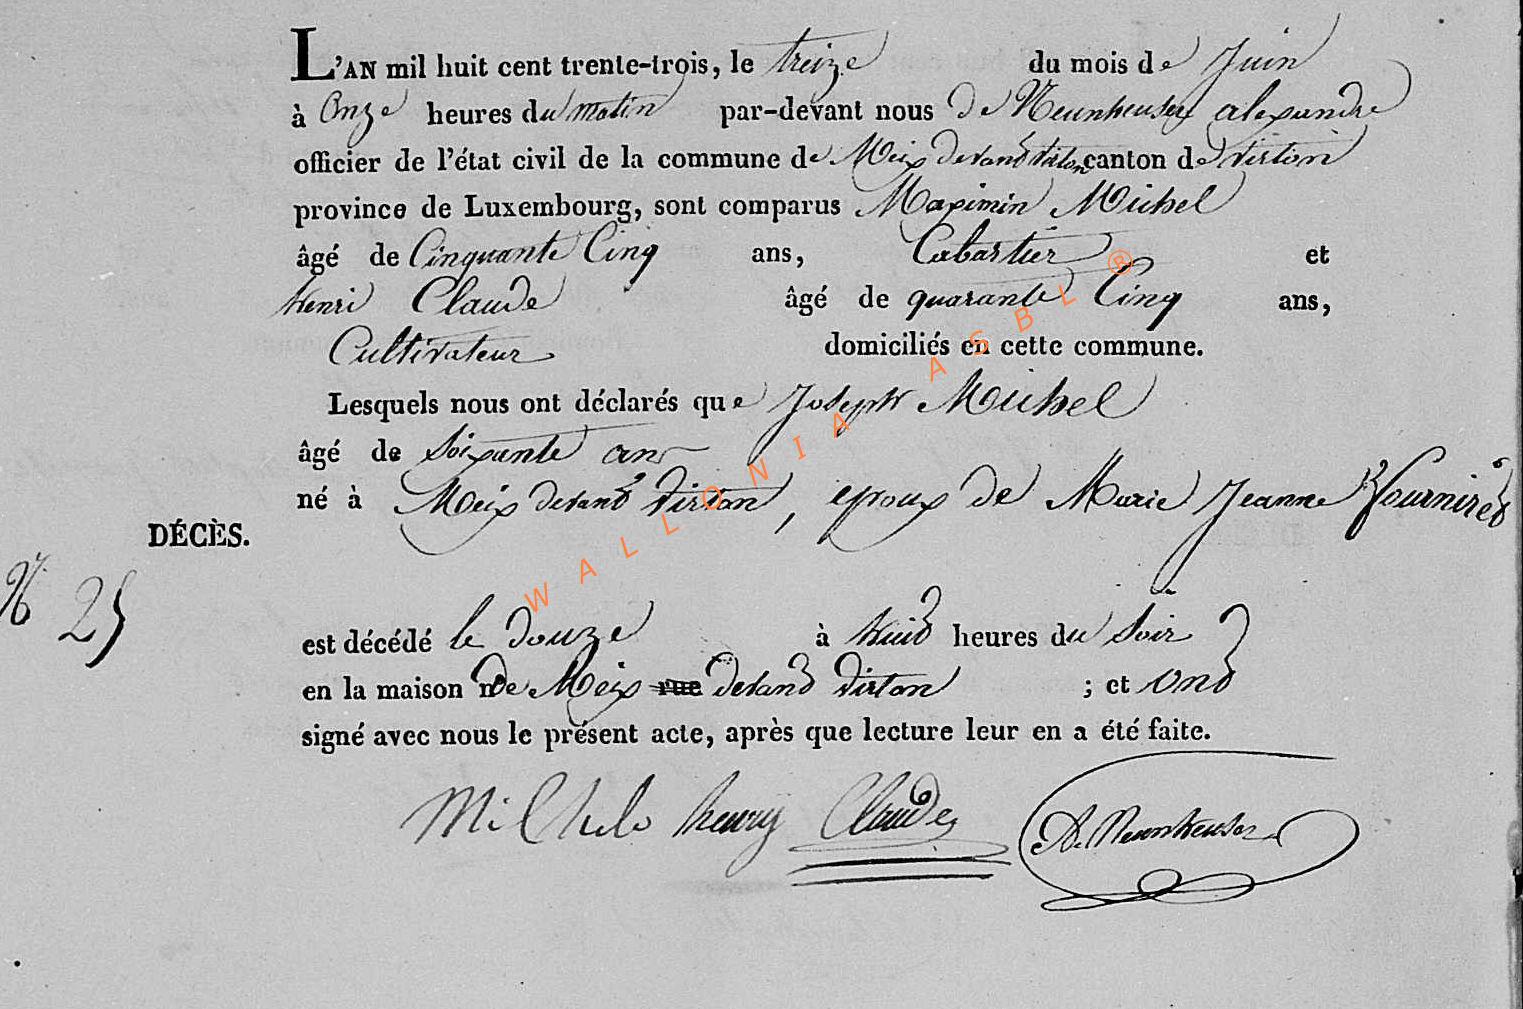 L'AN mil huit cent trente-trois, le treize du mois de Juin
à Onze heures du matin par-devant nous de Neunheuser alexandre
officier de l'état civil de la commune de Meix devant virton canton de virton
province de Luxembourg, sont comparus Maximin Michel
âgé de Cinquante Cinq ans, Cabartier et
henri Claude âgé de quarante Cinq ans,
Cultivateur domiciliés en cette commune.
Lesquels nous ont déclarés que Joseph Michel
âgé de Soixante ans
né à Meix devant Virton, epoux de Marie Jeanne
DÉCÈS.
N° 25
est décédé le douze à huit heures du Soir
en la maison de Meix rue devant virton ; et ont
signé avec nous le présent acte, après que lecture leur en a été faite.
henry Claude A. Neunheuser
WALLONIA ASBL ®